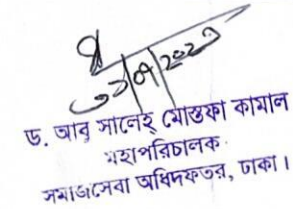 ড. আবু সালেহ্ মোস্তফা কামাল
মহাপরিচালক
সমাজসেবা অধিদফতর, ঢাকা।